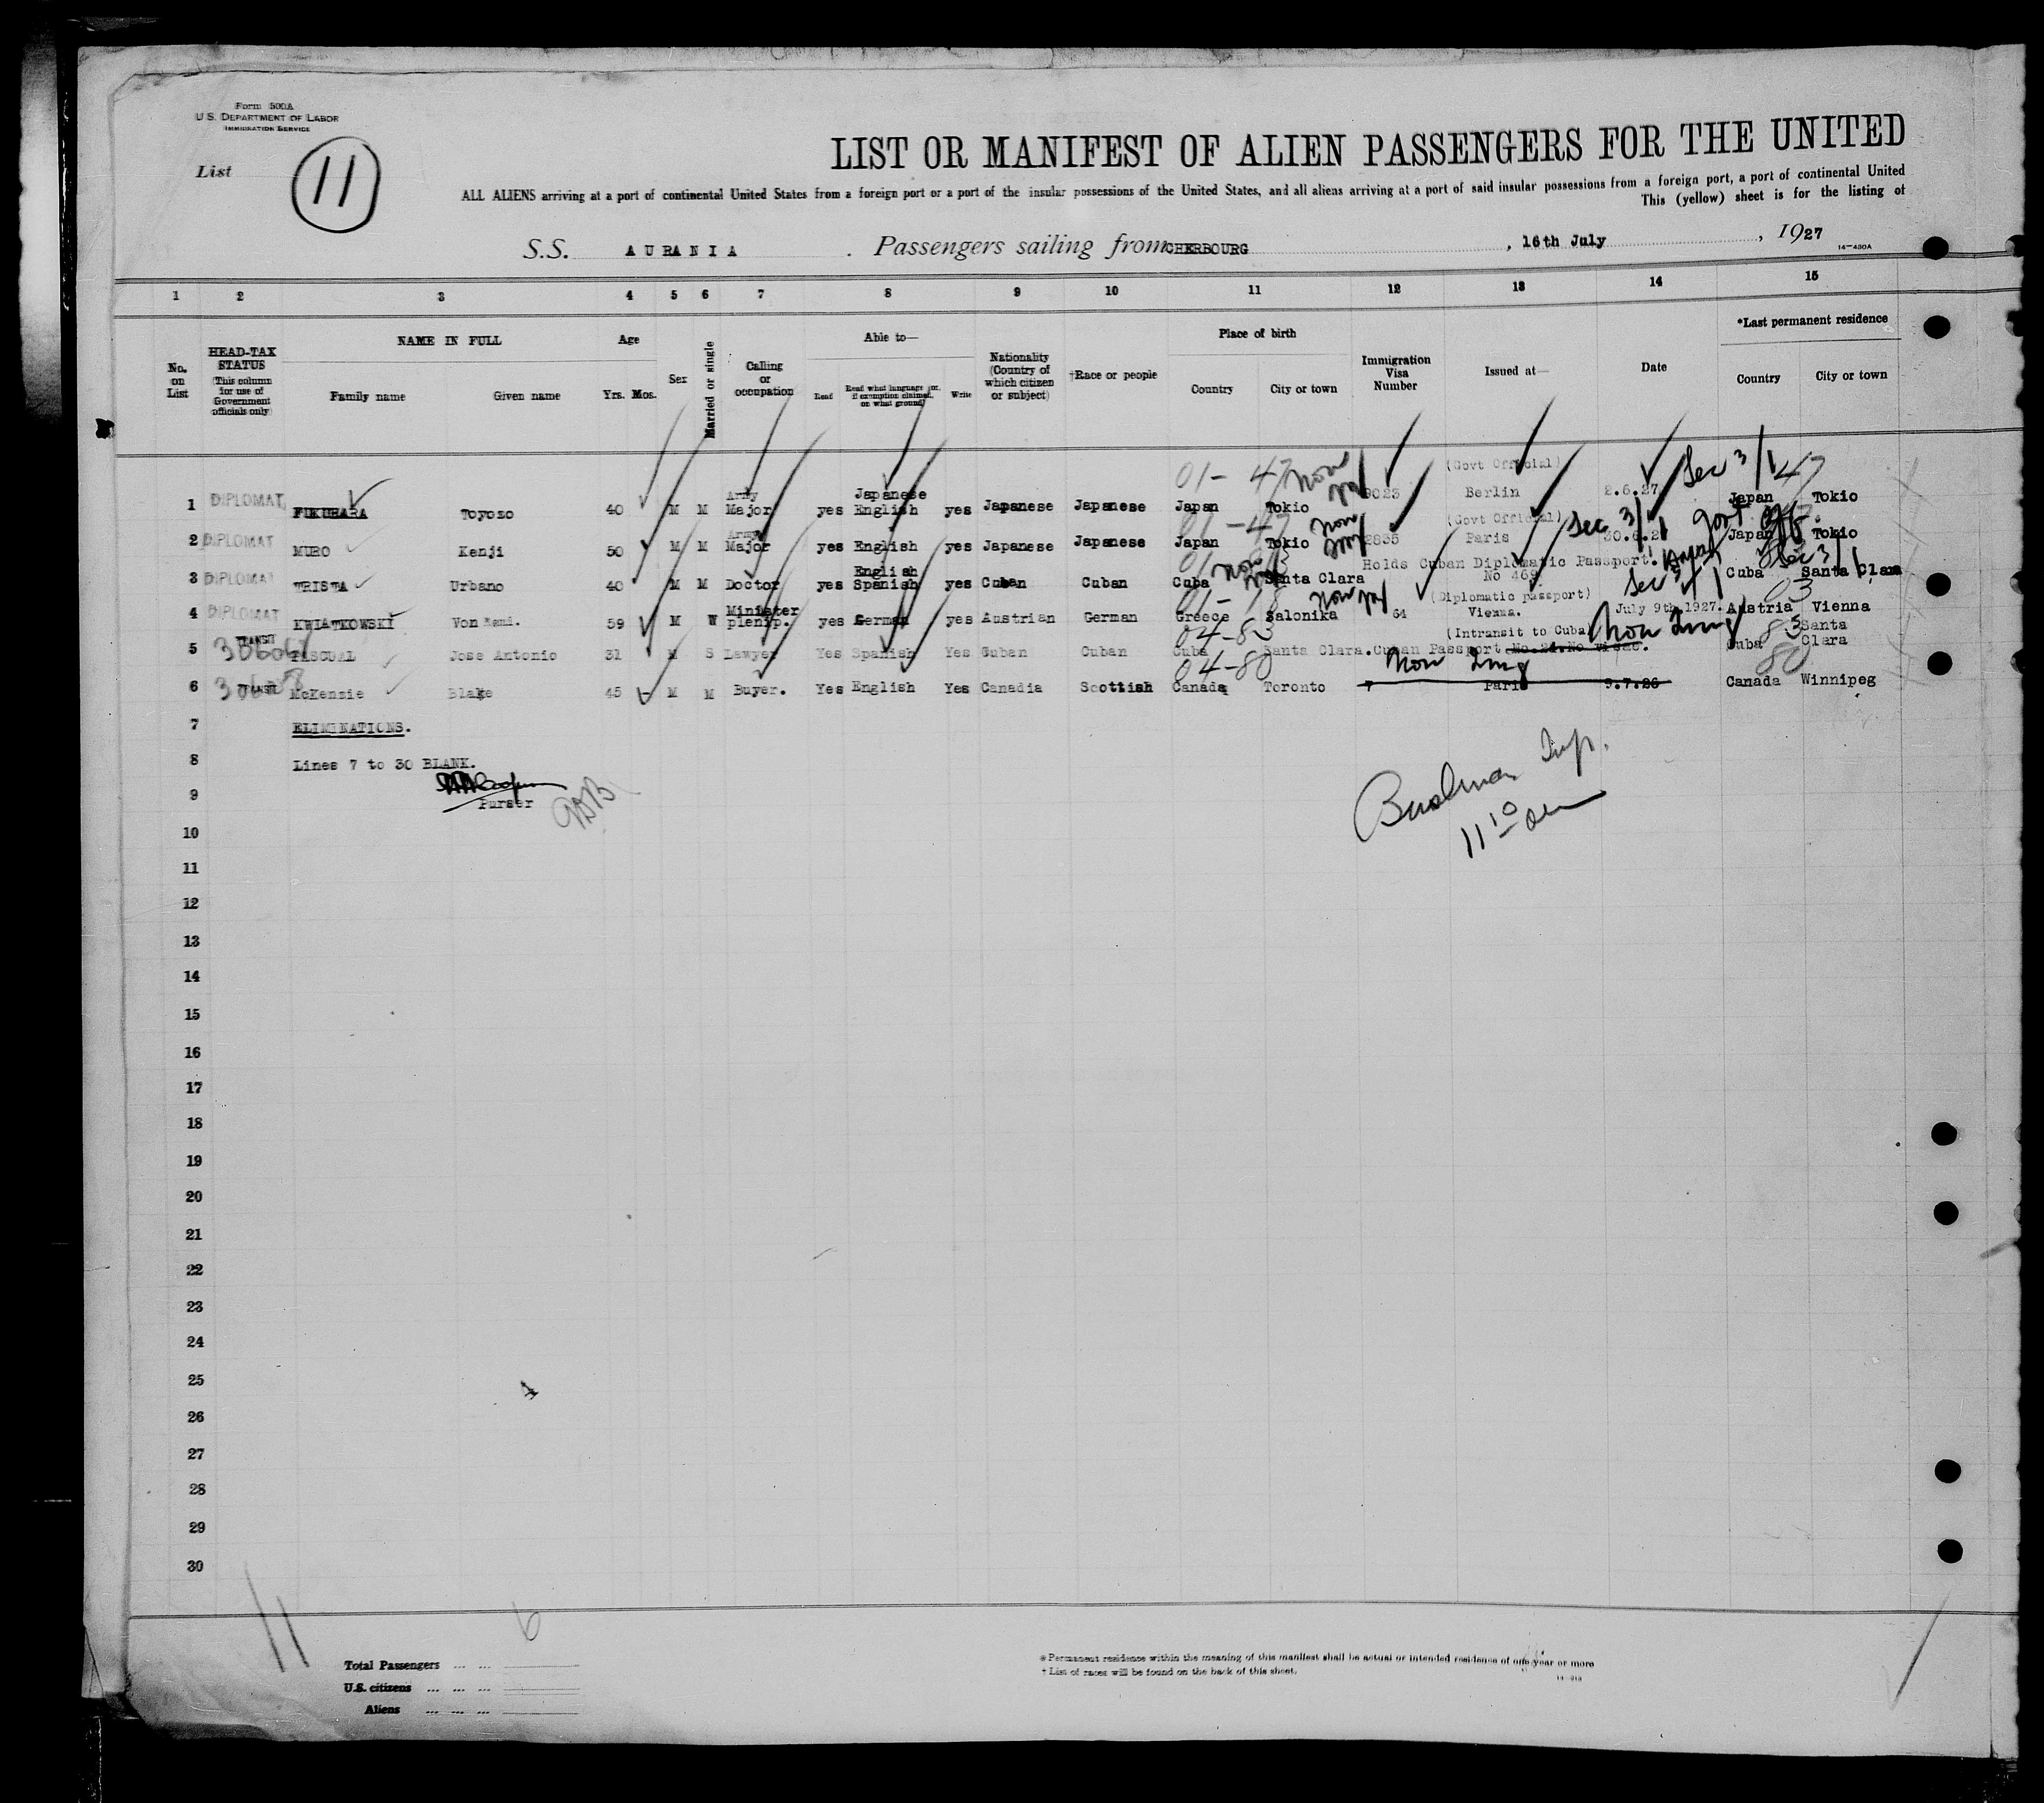 Form 500A
U.S. DEPARTMENT OF LABOR
IMMIGRATION SERVICE
List 11
LIST OR MANIFEST OF ALIEN PASSENGERS FOR THE UNITED
ALL ALIENS arriving at a port of continental United States from a foreign port or a port of the insular possessions of the United States, and all aliens arriving at a port of said insular possessions from a foreign port, a port of continental United
This (yellow) sheet is for the listing of
S.S. AURANIA. Passengers sailing from CHERBOURG, 16th July, 1927
14-430A
1 2 3 4 5 6 7 8 9 10 11 12 13 14 15
No. on List
HEAD-TAX STATUS (This column for use of Government officials only)
NAME IN FULL
Family name Given name
Age
Yrs. Mos.
Sex
Married or single
Calling or occupation
Able to—
Read Read what language [or, if exemption claimed, on what ground] Write
Nationality (Country of which citizen or subject)
†Race or people
Place of birth
Country City or town
Immigration Visa Number
Issued at—
Date
*Last permanent residence
Country City or town
01-47 (Govt Official) Sec 3/1 47
1 DIPLOMAT FUKUHARA Toyozo 40 M M Army Major yes Japanese English yes Japanese Japanese Japan Tokio Berlin 2.6.27 Japan Tokio
01-47 (Govt Official) Sec 3/1 Govt Off.
2 DIPLOMAT MURO Kenji 50 M M Army Major yes English yes Japanese Japanese Japan Tokio 2835 Paris 30.6.2 Japan Tokio
3 DIPLOMAT TRISTA Urbano 40 M M Doctor yes English Spanish yes Cuban Cuban Cuba Santa Clara Holds Cuban Diplomatic Passport No 469 Sec 3/1 Cuba Santa Clara
01-18 (Diplomatic passport) 03
4 DIPLOMAT KWIATKOWSKI Von 59 M W Minister plenip. yes German yes Austrian German Greece Salonika 64 Vienna. July 9th 1927. Austria Vienna
04-83 (Intransit to Cuba) Non Imm 83
5 TRANSIT PASCUAL Jose Antonio 31 M S Lawyer Yes Spanish Yes Cuban Cuban Cuba Santa Clara. Cuban Passport Cuba Santa Clara
04-80 Non Imm 80
6 TRANSIT McKenzie Blake 45 M M Buyer. Yes English Yes Canadia Scottish Canada Toronto 7 Paris 9.7.26 Canada Winnipeg
7 ELIMINATIONS.
8 Lines 7 to 30 BLANK.
9 Purser
Insp.
11 10 am
10
11
12
13
14
15
16
17
18
19
20
21
22
23
24
25
26
27
28
29
30
11 6
Total Passengers ... ...
U.S. citizens ... ... ...
Aliens ... ... ...
* Permanent residence within the meaning of this manifest shall be actual or intended residence of one year or more
† List of races will be found on the back of this sheet.